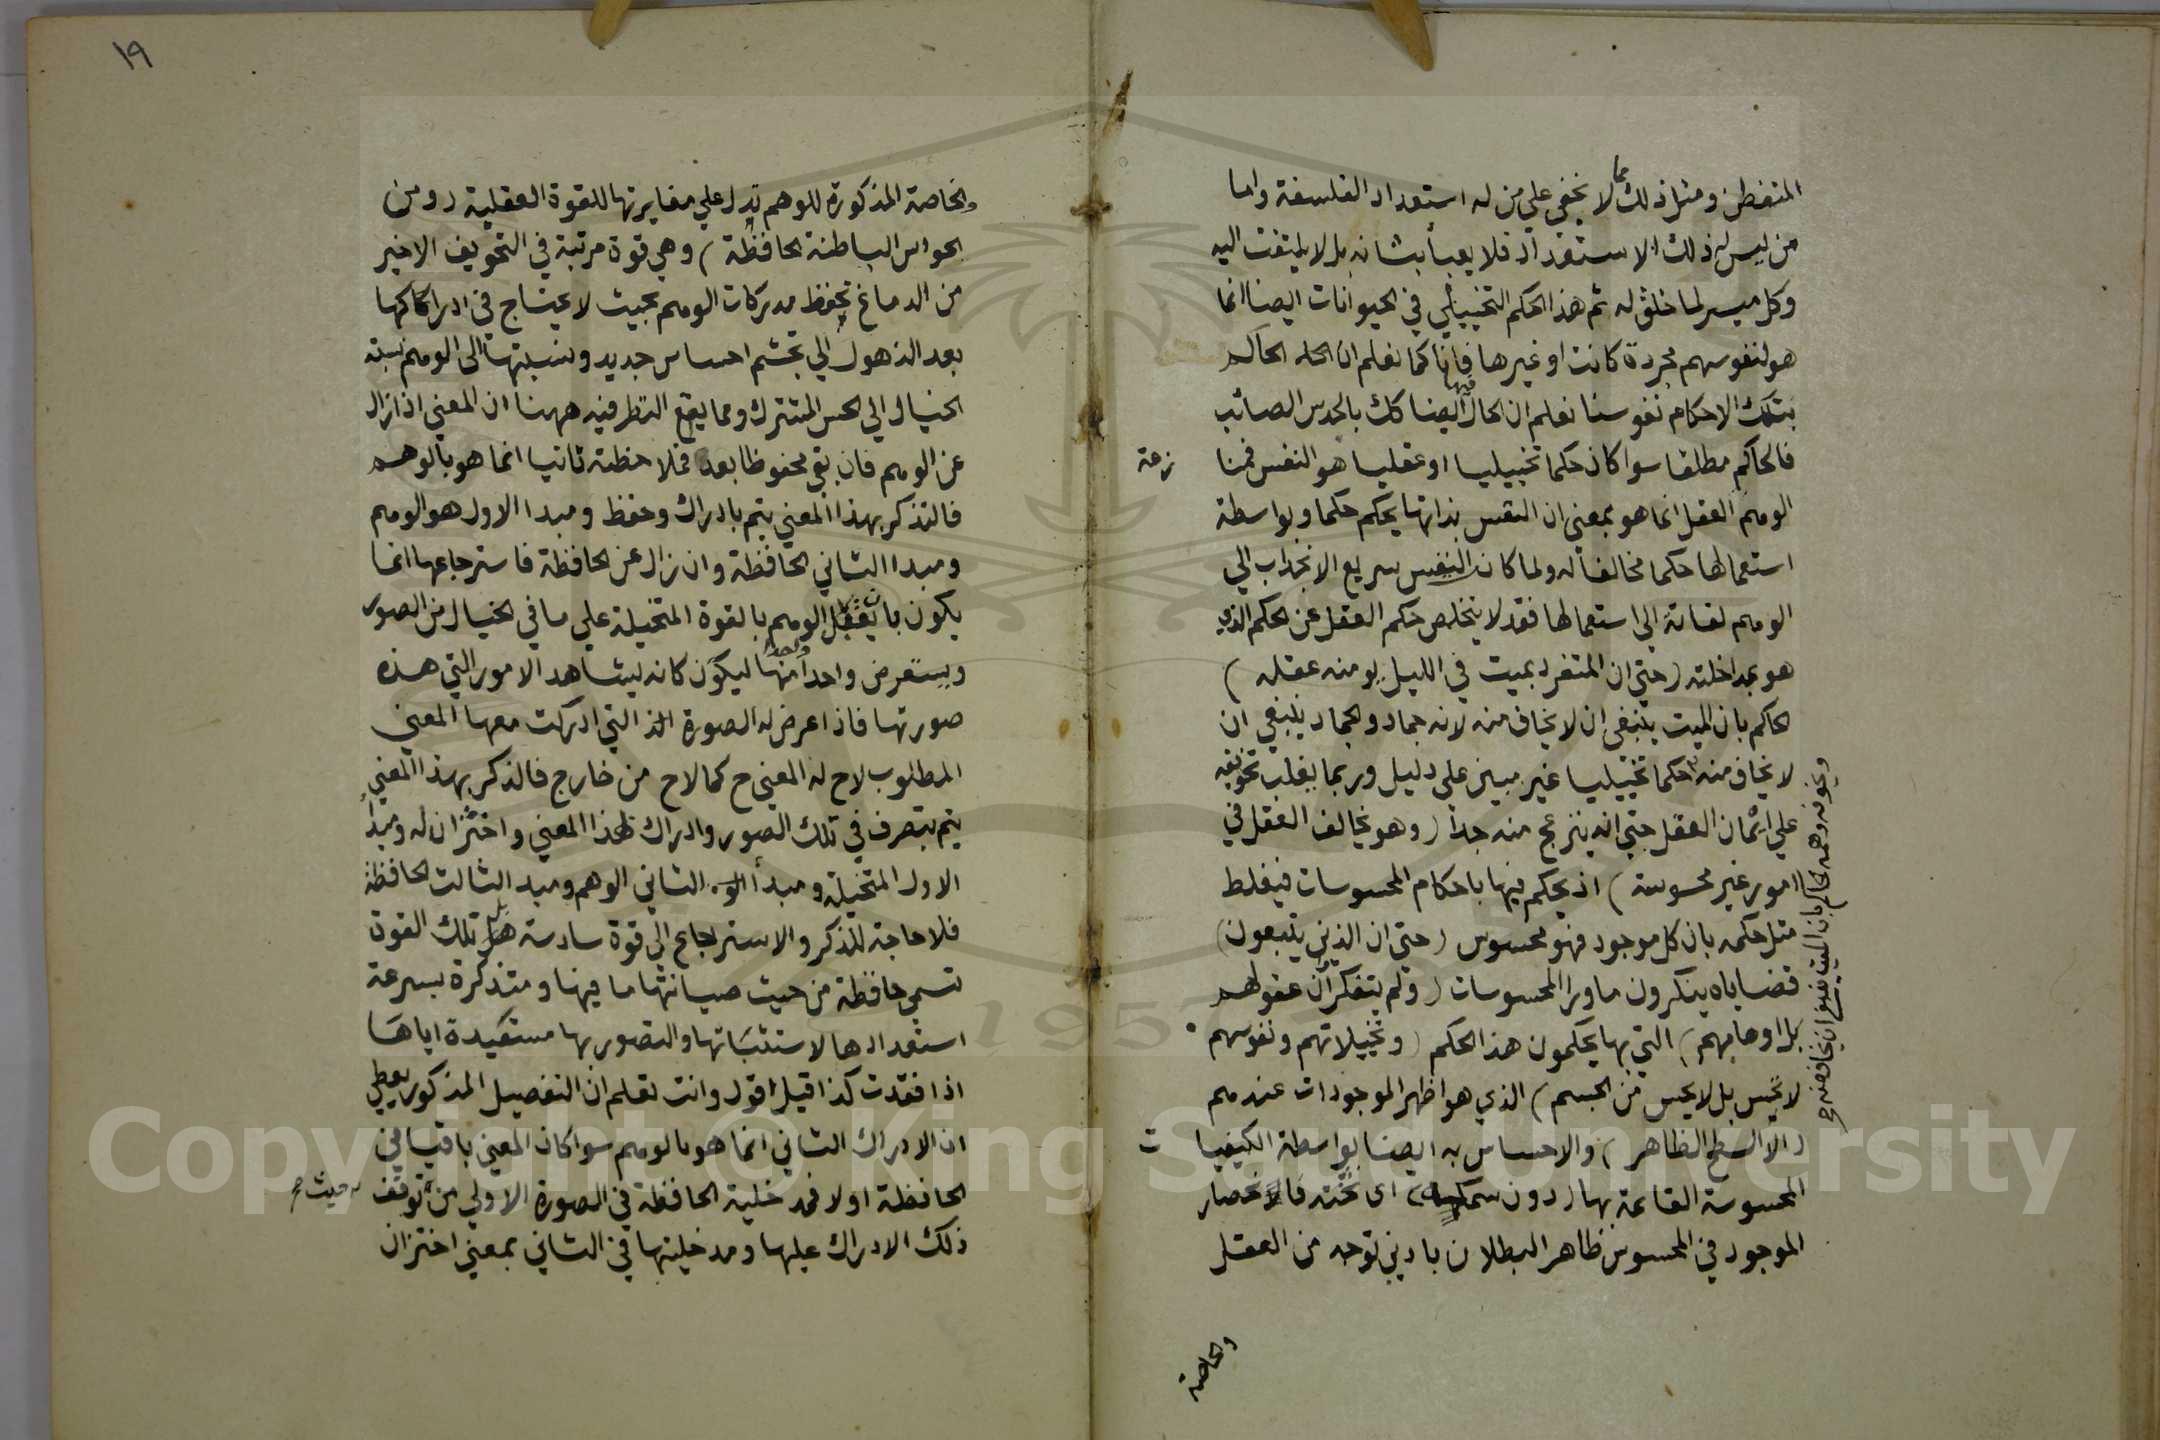 المتفطن ومثل ذلك مما لا يخفي علي من له استعداد الفلسفة واما
من ليس له ذلك الاستعداد فلا يعبأ بشانه بل لا يلتفت اليه
وكل ميسر لما خلق له ثم هذا الحكم التخييلي في الحيوانات ايضا انما
هو لنفوسهم مجردة كانت او غيرها فانا كما نعلم ان الحاكم
بتلك الاحكام نفوسنا نعلم ان الحال فيها ايضا كك بالحدس الصائب
فالحاكم مطلقا سوا كان حكما تخييليا او عقليا هو النفس فمنا
زعة
الوهم العقل انما هو بمعني ان النفس بذاتها يحكم حكما وبواسطة
استعمالها حكما مخالفا له ولما كان النفس سريع الانجذاب الي
الوهم لغاتة الي استعمالها فقد لا يتخلص حكم العقل عن الحكم الذي
هو بمداخلته (حتي ان المتفرد بميت في الليل يومنه عقله)
الحاكم بان الميت ينبغي ان لا يخاف منه لانه جماد والجماد ينبغي ان
لا يخاف منه حكما تخييليا غير مبين علي دليل وربما يغلب تخويفه
علي ائمان العقل حتي انه ينزعج منه جدا (وهو يخالف العقل في
امور غير محسوسة) اذ يحكم فيها باحكام المحسوسات فيغلط
مثل حكمه بان كل موجود فهو محسوس (حتي ان الذين يتبعون)
قضاياه ينكرون ماورا المحسوسات (ولم يتفكر ان عقولهم
بل اوهامهم) التي بها يحكمون هذا الحكم (وتخييلاتهم ونفوسهم
لا يحس بل لا يحس من الجسم) الذي هو اظهر الموجودات عندهم
(الا السطح الظاهر) والاحساس به ايضا بواسطة الكيفيا
ت
المحسوسة القائمة بها (دون سمكه) اى ثخنه فانحصار
الموجود في المحسوس ظاهر البطلان بادني توجه من العقل
والخاصة
ويخوفه وهمه الحاكم بان الميت ينبغي ان يخاف منه
١٩
والخاصة المذكورة للوهم تدل علي مغايرتها للقوة العقلية (ومن
الحواس الباطنة الحافظة) وهي قوة مرتبة في التجويف الاخير
من الدماغ تحفظ مدركات الوهم بحيث لا يحتاج في ادراكها
بعد الذهول الي تجشم احساس جديد ونسبتها الى الوهم نسبة
الخيال الي الحس المشترك ومما يقع النظر فيه ههنا ان المعني اذا زال
عن الوهم فان بقي محفوظا بعد فملاحظته ثانيا انما هو بالوهم
فالتذكر بهذا المعني يتم بادراك وحفظ ومبدا الاول هو الوهم
ومبدا الثاني الحافظة وان زال عن الحافظة فاسترجاعها انما
يكون بان يقبل الوهم بالقوة المتخيلة علي ما في الخيال من الصور
ويستعرض واحدا واحدا منها ليكون كانه يشاهد الامور التي هذه
صورتها فاذا عرض له الصورة التي ادركت معها المعني
المطلوب لاح له المعني ح كما لاح من خارج فالذكر بهذا المعني
يتم بتصرف في تلك الصور وادراك لهذا المعني واختزان له ومبدأ
الاول المتخيلة ومبدأ الثاني الوهم ومبد الثالث الحافظة
فلا حاجة للذكر والاسترجاع الي قوة سادسة بل تلك القوة
تسمي حافظة من حيث صيانتها ما فيها ومتذكرة بسرعة
استعدادها لاستثباتها والتصور بها مستعيدة اياها
اذا فقدت كذا قيل اقول وانت تعلم ان التفصيل المذكور يعطي
ان الادراك الثاني انما هو بالوهم سوا كان المعني باقيا في
الحافظة او لا فمدخلية الحافظة في الصورة الاولي من توقف
حيث
ذلك الادراك عليها ومدخليتها في الثاني بمعني اختزان
Copyright © King Saud University
1957